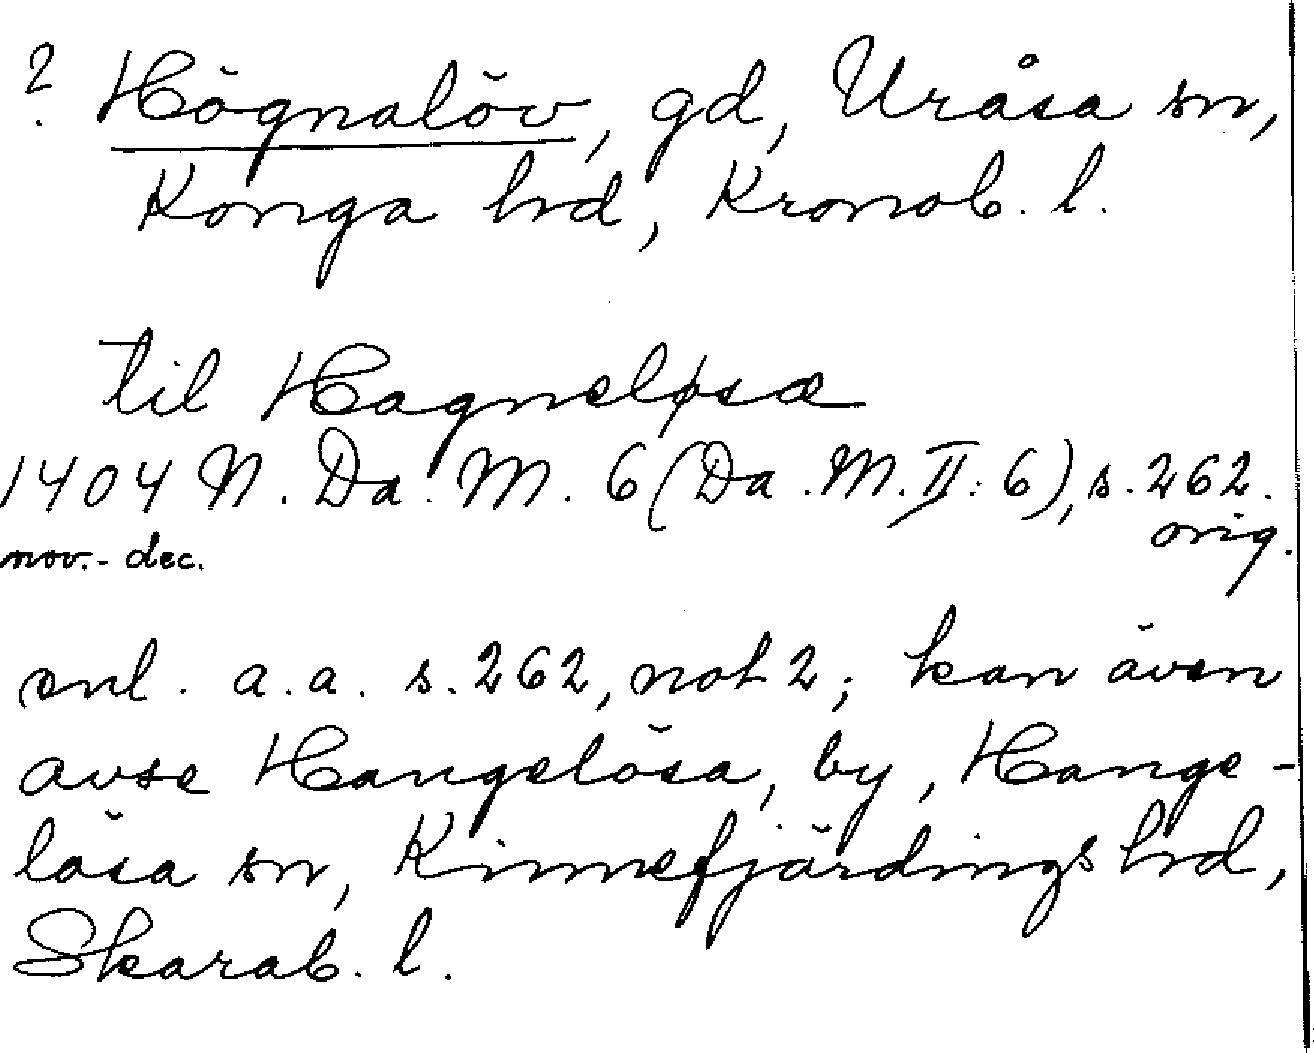 ? Högnalöv, gd, Uråsa sn,
Konga hd, Kronob. l.
til Hagneløsæ
1404 N. Da. M. 6 (Da. M. II: 6), s. 262.
orig.
nov.- dec.
enl. a.a. s. 262, not 2; kan även
avse Hangelösa, by, Hange-
lösa sn, Kinnefjärdings hd,
Skarab. l.